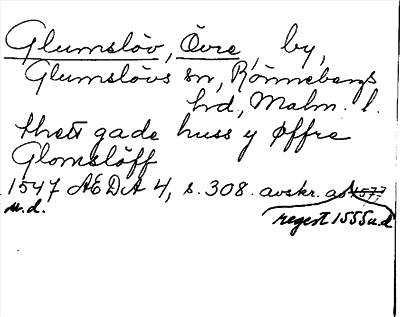 Glumslöv, Övre, by,
Glumslövs sn, Rönnebergs
hd, Malm. l.
thett gade huss y Øffre
Glomslöff
1547 ÆDA 4, s. 308. avskr. av 1577
u.d.
regest 1555 u.d